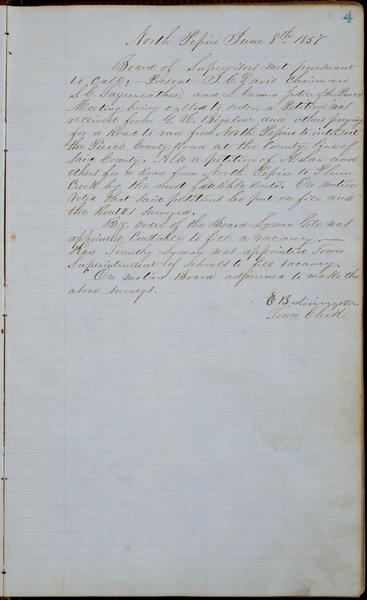 4
North Pepin June 8th 1857
Board of Supervisors met pursuant
to Call. - Present J. C. Davis Chairman
S. C. Fayerweather, and L. Cannon Justice of the Peace
Meeting being called to order a Petition was
received from G. W. Bigelow and others praying
for a Road to run from North Pepin to intersect
the Pierce County Road at the County line of
Said County. Also a petition of A. and
others for a Road from North Pepin to Plum
Creek by the most feasible route. On motion
Voted that said petitions be put on file and
the Routes surveyed.
By order of the Board Lyman was
appointed Constable to fill a vacancy. —
Rev. Timothy Lyman was appointed Town
Superintendent of schools to fill vacancy.
On motion Board adjourned to make the
above surveys.
E B Livingston
Town Clerk